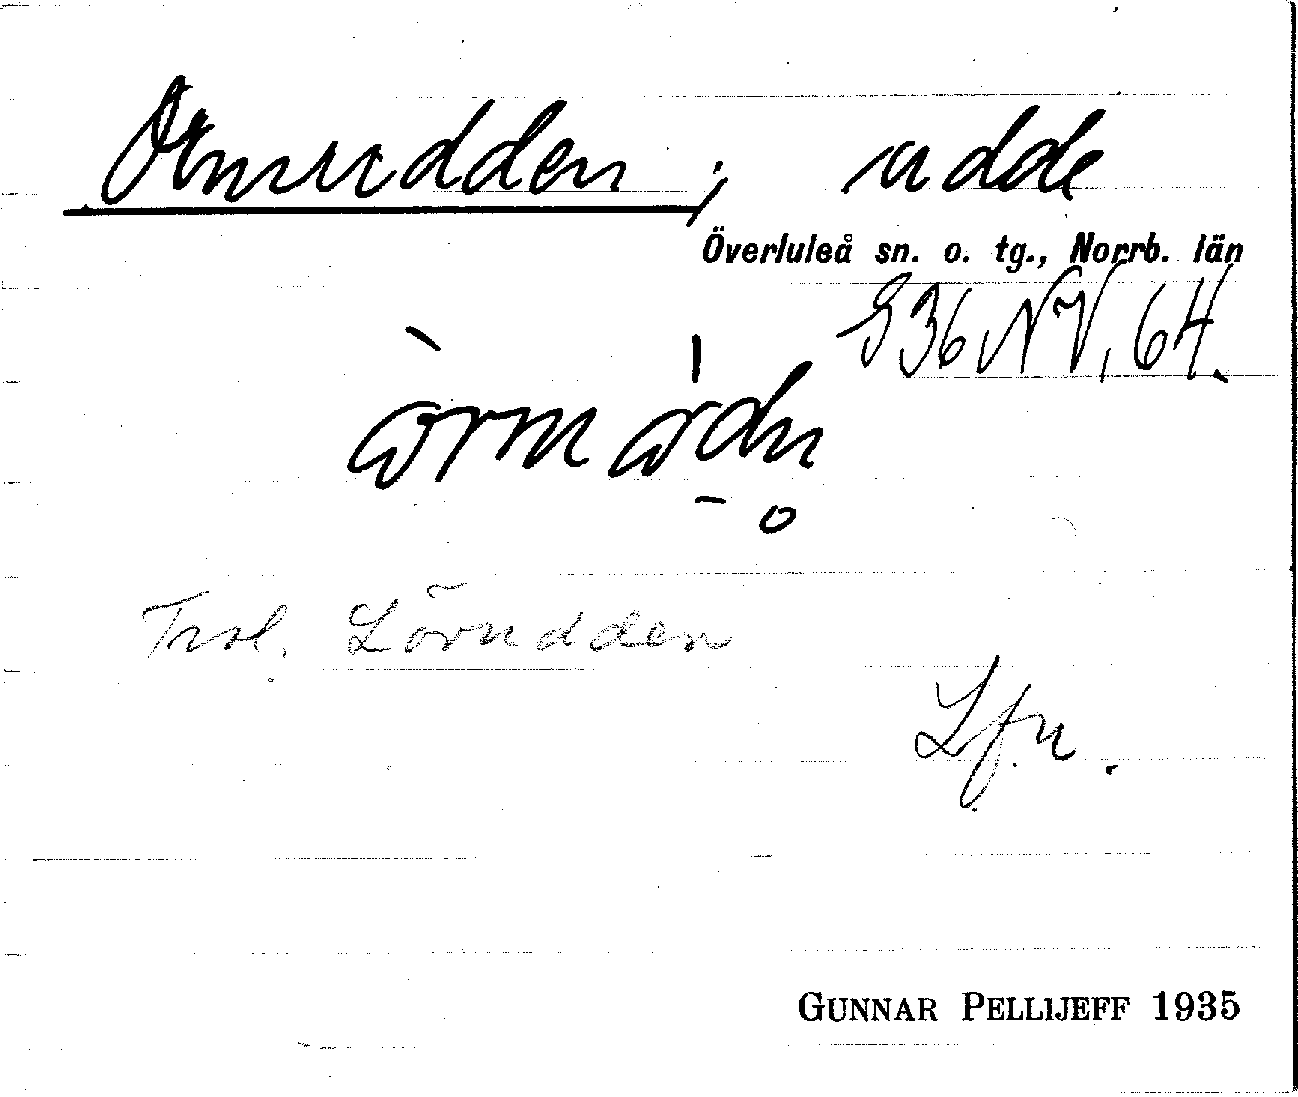 Ormudden, udde
Överluleå sn. o. tg., Norrb. län
S36NV, 64.
Trol. Lövudden
Lfn.
GUNNAR PELLIJEFF 1935